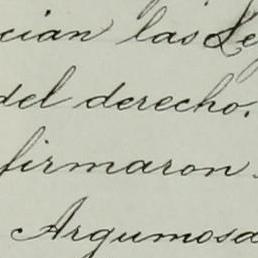 cian las Le
del derecho.
firmaron
Argumosa